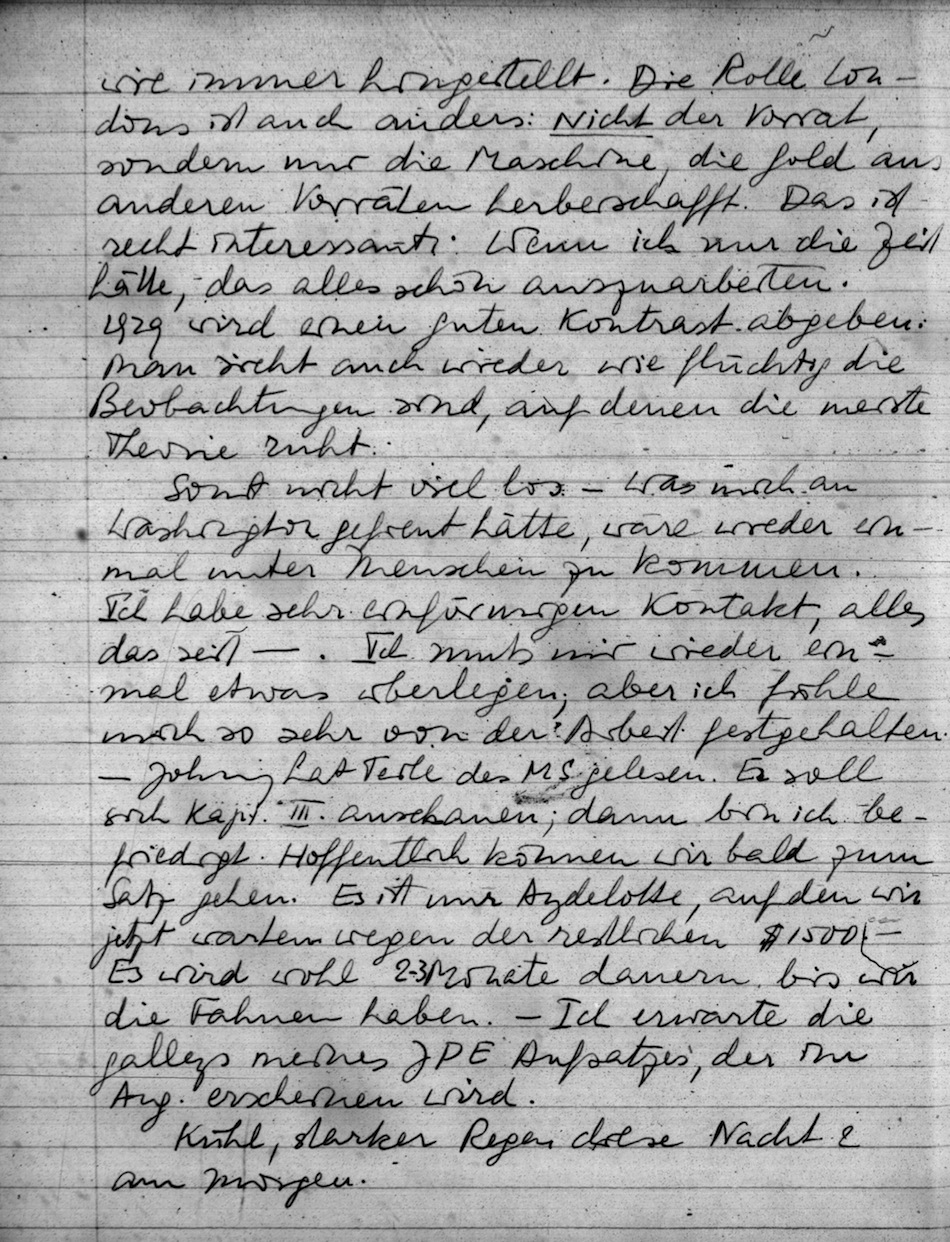 wie immer hingestellt. Die Rolle Lon-
dons ist auch anders: Nicht der Vorrat,
sondern nur die Maschine, die Gold aus
anderen Vorräten herbeischafft. Das ist
recht interessant. Wenn ich nur die Zeit
hätte, das alles schön auszuarbeiten.
1929 wird einen guten Kontrast abgeben.
Man sieht auch wieder wie flüchtig die
Beobachtungen sind, auf denen die meiste
Theorie ruht.
Sonst nicht viel los – Was mich an
Washington gefreut hätte, wäre wieder ein-
mal unter Menschen zu kommen.
Ich habe sehr einförmigen Kontakt, alles
das seit — . Ich muß mir wieder ein-
mal etwas überlegen, aber ich fühle
mich so sehr von der Arbeit festgehalten.
— Johnny hat Teile des MS gelesen. Er soll
sich Kapt. III. anschauen; dann bin ich be-
friedigt. Hoffentlich können wir bald zum
Satz gehen. Es ist nur Aydelotte, auf den wir
jetzt warten wegen der restlichen $1500.–
Es wird wohl 2-3 Monate dauern bis wir
die Fahnen haben. – Ich erwarte die
galleys meines JPE Aufsatzes, der im
Aug. erscheinen wird.
Kühl, starker Regen diese Nacht &
am Morgen.